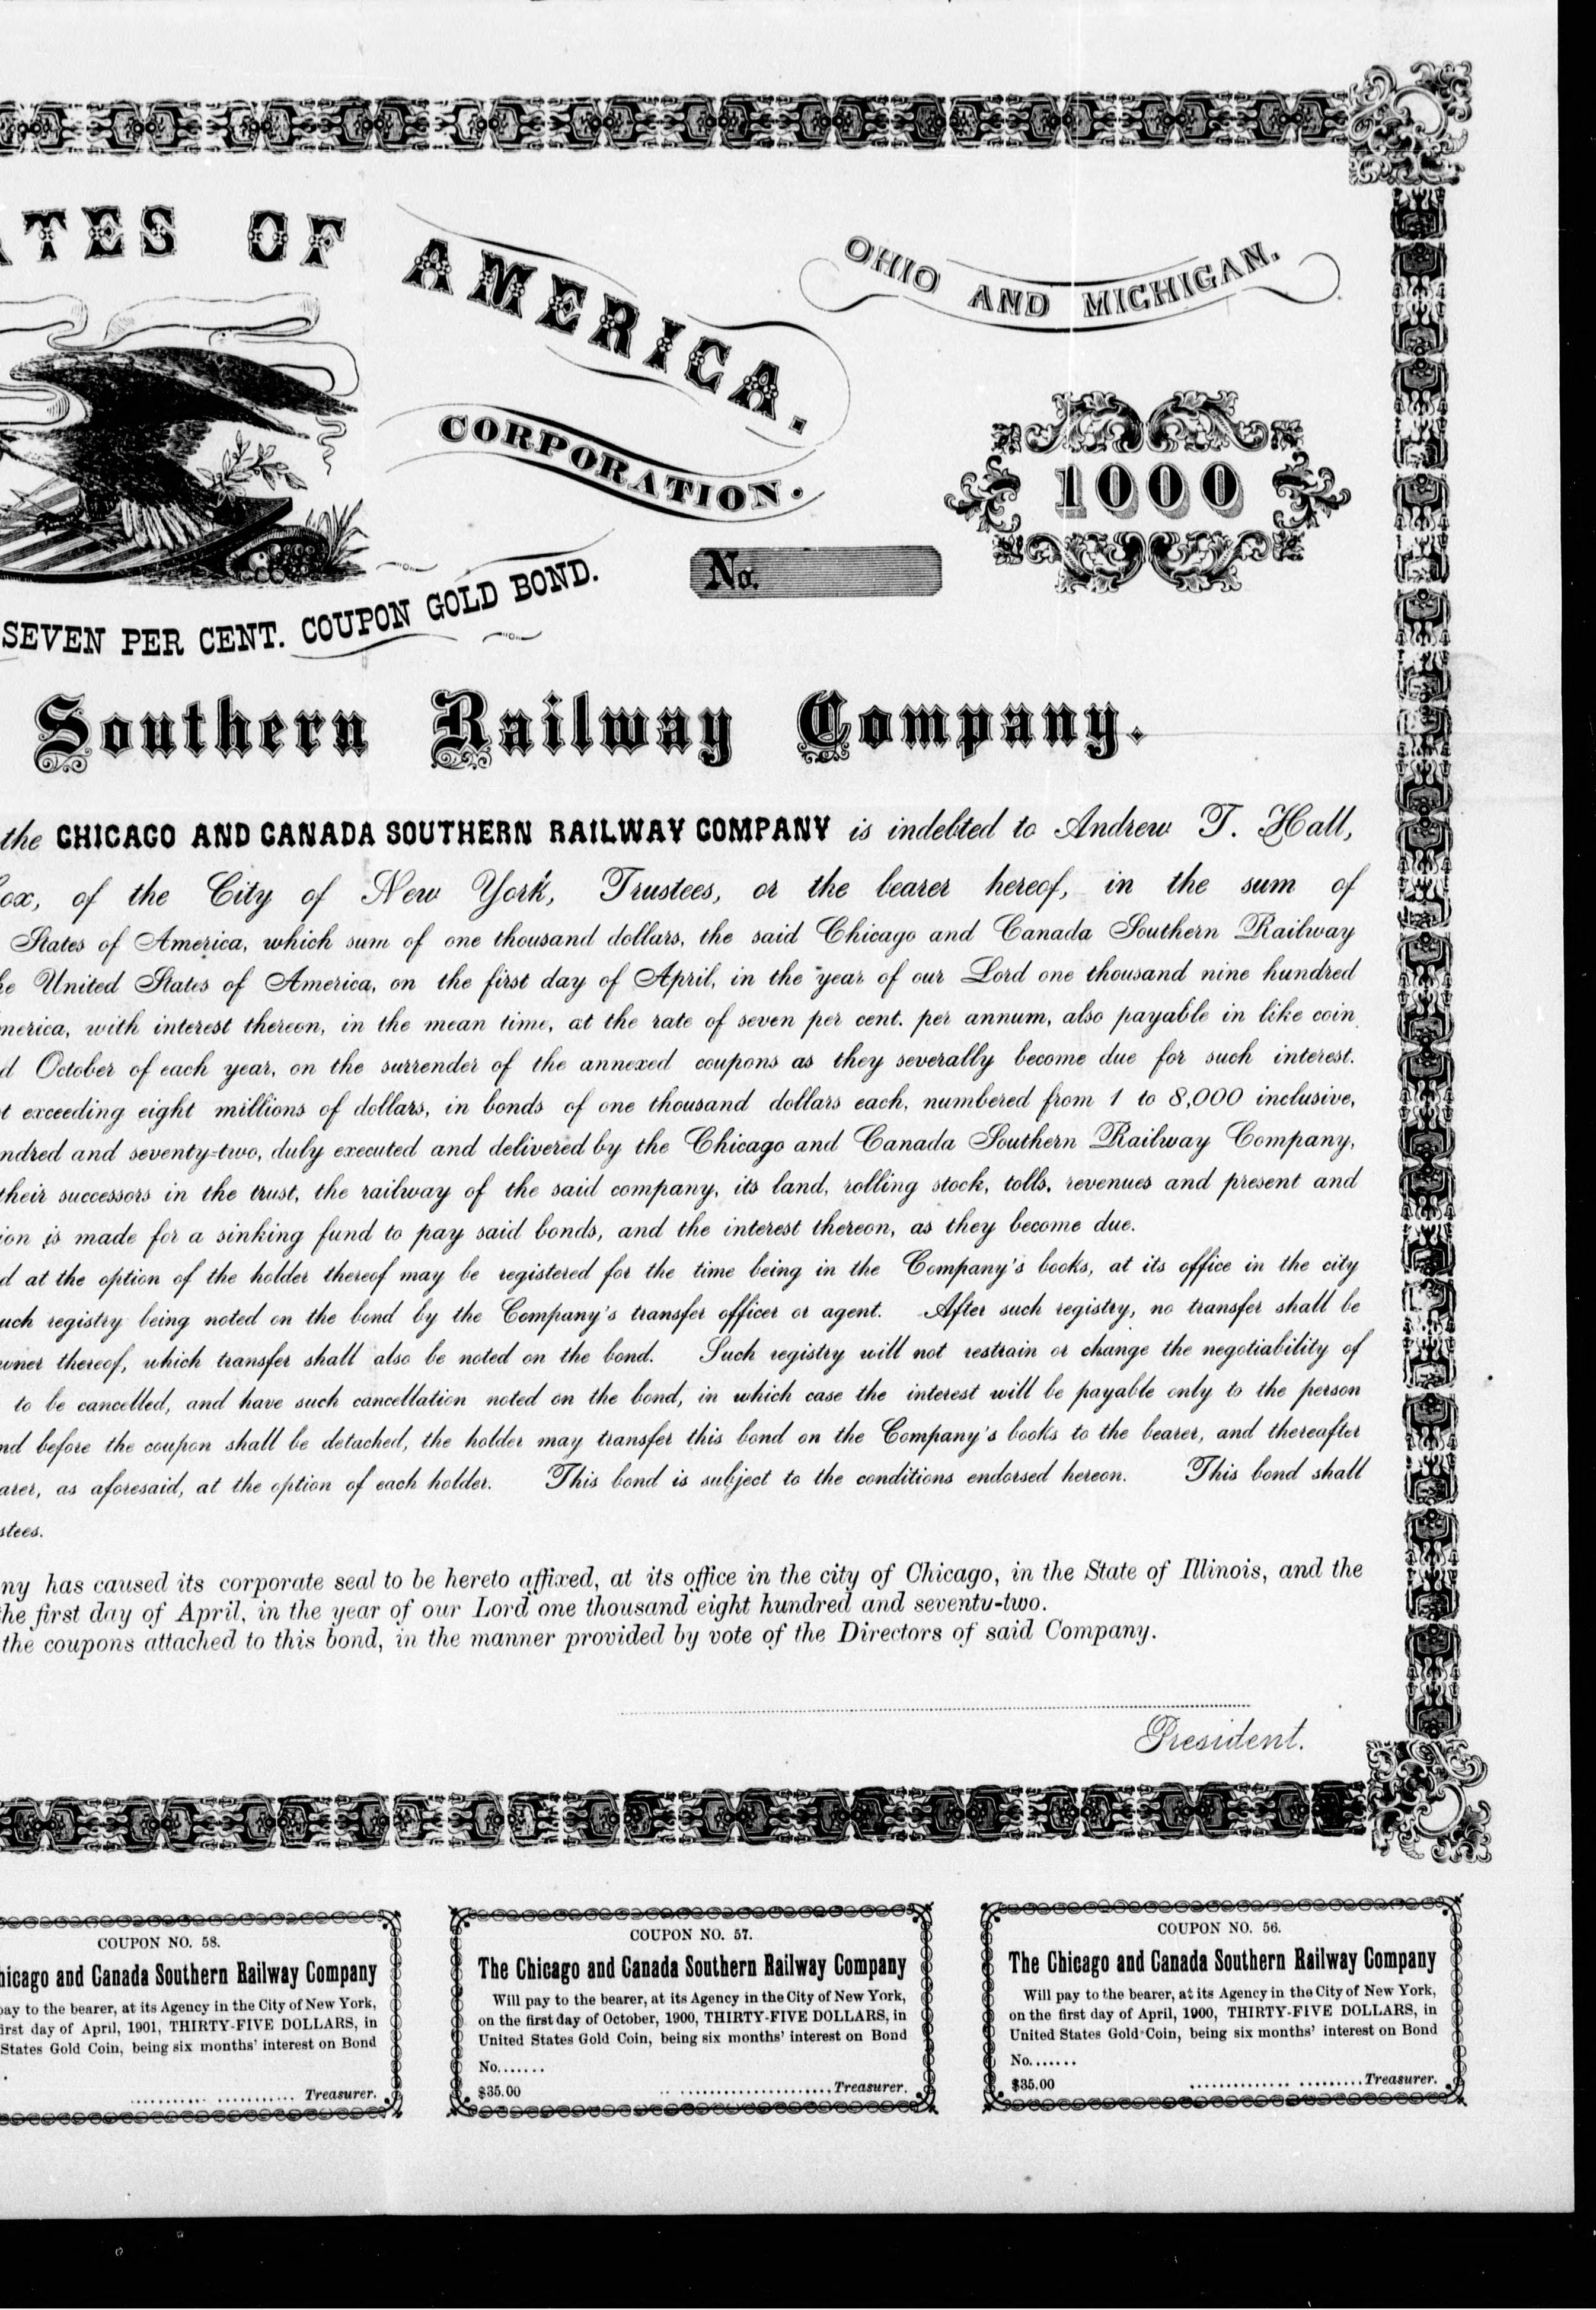 ATES OF AMERICA.
OHIO AND MICHIGAN.
CORPORATION.
1000
No.
SEVEN PER CENT. COUPON GOLD BOND.
Southern Railway Company.
the CHICAGO AND CANADA SOUTHERN RAILWAY COMPANY is indebted to Andrew T. Hall,
ox, of the City of New York, Trustees, or the bearer hereof, in the sum of
States of America, which sum of one thousand dollars, the said Chicago and Canada Southern Railway
he United States of America, on the first day of April, in the year of our Lord one thousand nine hundred
merica, with interest thereon, in the mean time, at the rate of seven per cent. per annum, also payable in like coin
d October of each year, on the surrender of the annexed coupons as they severally become due for such interest.
t exceeding eight millions of dollars, in bonds of one thousand dollars each, numbered from 1 to 8,000 inclusive,
ndred and seventy-two, duly executed and delivered by the Chicago and Canada Southern Railway Company,
their successors in the trust, the railway of the said company, its land, rolling stock, tolls, revenues and present and
ion is made for a sinking fund to pay said bonds, and the interest thereon, as they become due.
d at the option of the holder thereof may be registered for the time being in the Company's books, at its office in the city
uch registry being noted on the bond by the Company's transfer officer or agent. After such registry, no transfer shall be
wner thereof, which transfer shall also be noted on the bond. Such registry will not restrain or change the negotiability of
to be cancelled, and have such cancellation noted on the bond, in which case the interest will be payable only to the person
nd before the coupon shall be detached, the holder may transfer this bond on the Company's books to the bearer, and thereafter
arer, as aforesaid, at the option of each holder. This bond is subject to the conditions endorsed hereon. This bond shall
stees.
ny has caused its corporate seal to be hereto affixed, at its office in the city of Chicago, in the State of Illinois, and the
the first day of April, in the year of our Lord one thousand eight hundred and seventy-two.
the coupons attached to this bond, in the manner provided by vote of the Directors of said Company.
President.
COUPON NO. 58.
hicago and Canada Southern Railway Company
pay to the bearer, at its Agency in the City of New York,
irst day of April, 1901, THIRTY-FIVE DOLLARS, in
States Gold Coin, being six months' interest on Bond
Treasurer.
COUPON NO. 57.
The Chicago and Canada Southern Railway Company
Will pay to the bearer, at its Agency in the City of New York,
on the first day of October, 1900, THIRTY-FIVE DOLLARS, in
United States Gold Coin, being six months' interest on Bond
No.......
$35.00 Treasurer.
COUPON NO. 56.
The Chicago and Canada Southern Railway Company
Will pay to the bearer, at its Agency in the City of New York,
on the first day of April, 1900, THIRTY-FIVE DOLLARS, in
United States Gold Coin, being six months' interest on Bond
No.......
$35.00 Treasurer.